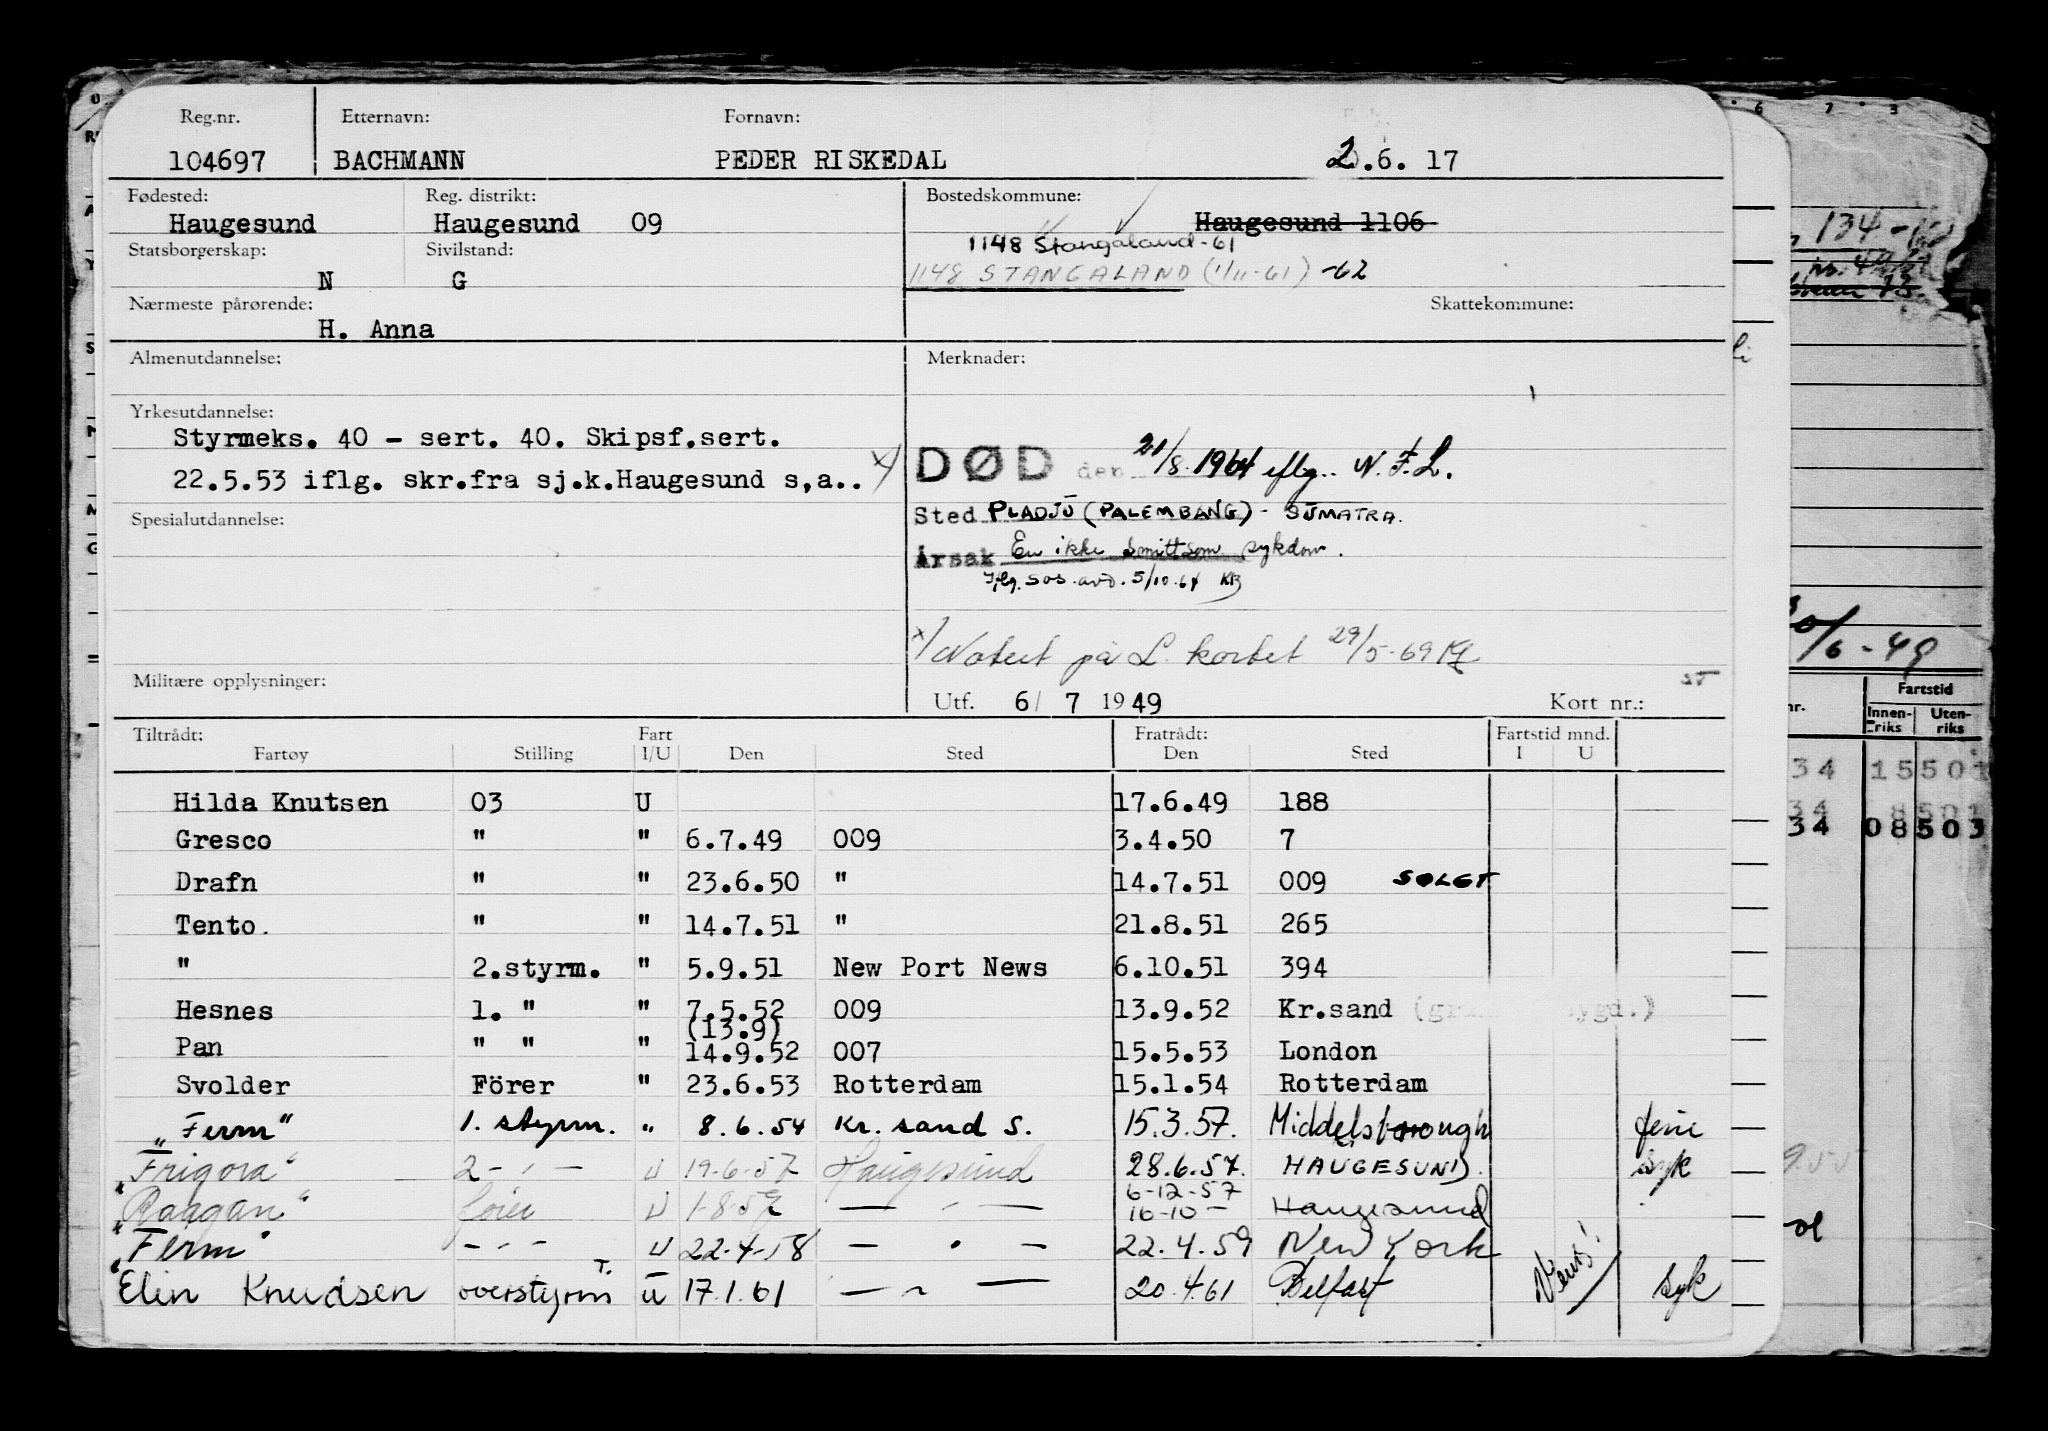 Reg.nr. Etternavn: Fornavn:
104697 BACHMANN PEDER RISKEDAL 2.6. 17
Fødested: Reg. distrikt: Bostedskommune:
Haugesund Haugesund 09 Haugesund 1106
1148 Stangaland-61
Statsborgerskap: Sivilstand:
N G 1148 STANGALAND (1/11-61) -62
Nærmeste pårørende: Skattekommune:
H. Anna
Almenutdannelse: Merknader:
Yrkesutdannelse:
Styrmeks. 40 - sert. 40. Skipsf.sert.
22.5.53 iflg. skr.fra sj.k.Haugesund s,a.. x/
DØD den 21/8.1964 iflg.. N.F.L.
Spesialutdannelse: Sted PLADJU (PALEMBANG) - SUMATRA.
Årsak En ikke smittsom sykdom.
Iflg. sos.avd. 5/10-64 KB
x/ Notert på L. kortet 29/5-69
Militære opplysninger: ST
Utf. 6/ 7 1949 Kort nr.:
Tiltrådt: Fart Fratrådt: Fartstid mnd.
Fartøy Stilling I/U Den Sted Den Sted I U
Hilda Knutsen 03 U 17.6.49 188
Gresco " " 6.7.49 009 3.4.50 7
Drafn " " 23.6.50 " 14.7.51 009 SOLGT
Tento. " " 14.7.51 " 21.8.51 265
" 2.styrm. " 5.9.51 New Port News 6.10.51 394
Hesnes 1. " " 7.5.52 009 13.9.52 Kr.sand
(13.9)
Pan " " " 14.9.52 007 15.5.53 London
Svolder Förer " 23.6.53 Rotterdam 15.1.54 Rotterdam
"Ferm" 1. styrm. " 8.6.54 Kr. sand S. 15.3.57. Middelsborough ferie
"Frigora" 2 - " - U 19-6-57 Haugesund 28.6.57. HAUGESUND. Syk
6-12-57
fører U 1-8-57 — " — 16-10 - Haugesund
"Ferm" - " - U 22-4-58 — " — 22.4.59 New York
Elin Knudsen overstyrm U 17.1.61 — " — 20.4.61 Belfast Vends! syk
134-
30/6-49
nr. Fartstid
Innen-riks Uten-riks
34 15501
34 8501
34 08503